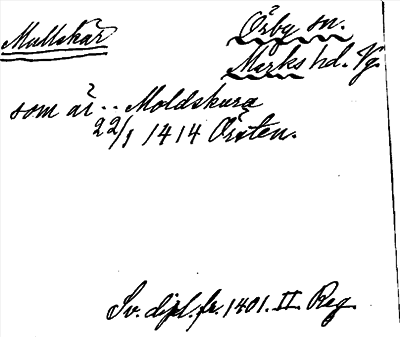 Mullskär
Örby sn.
Marks hd. Vg.
som är.. Moldskura
22/1 1414 Örsten.
Sv. dipl. fr. 1401. II. Reg.